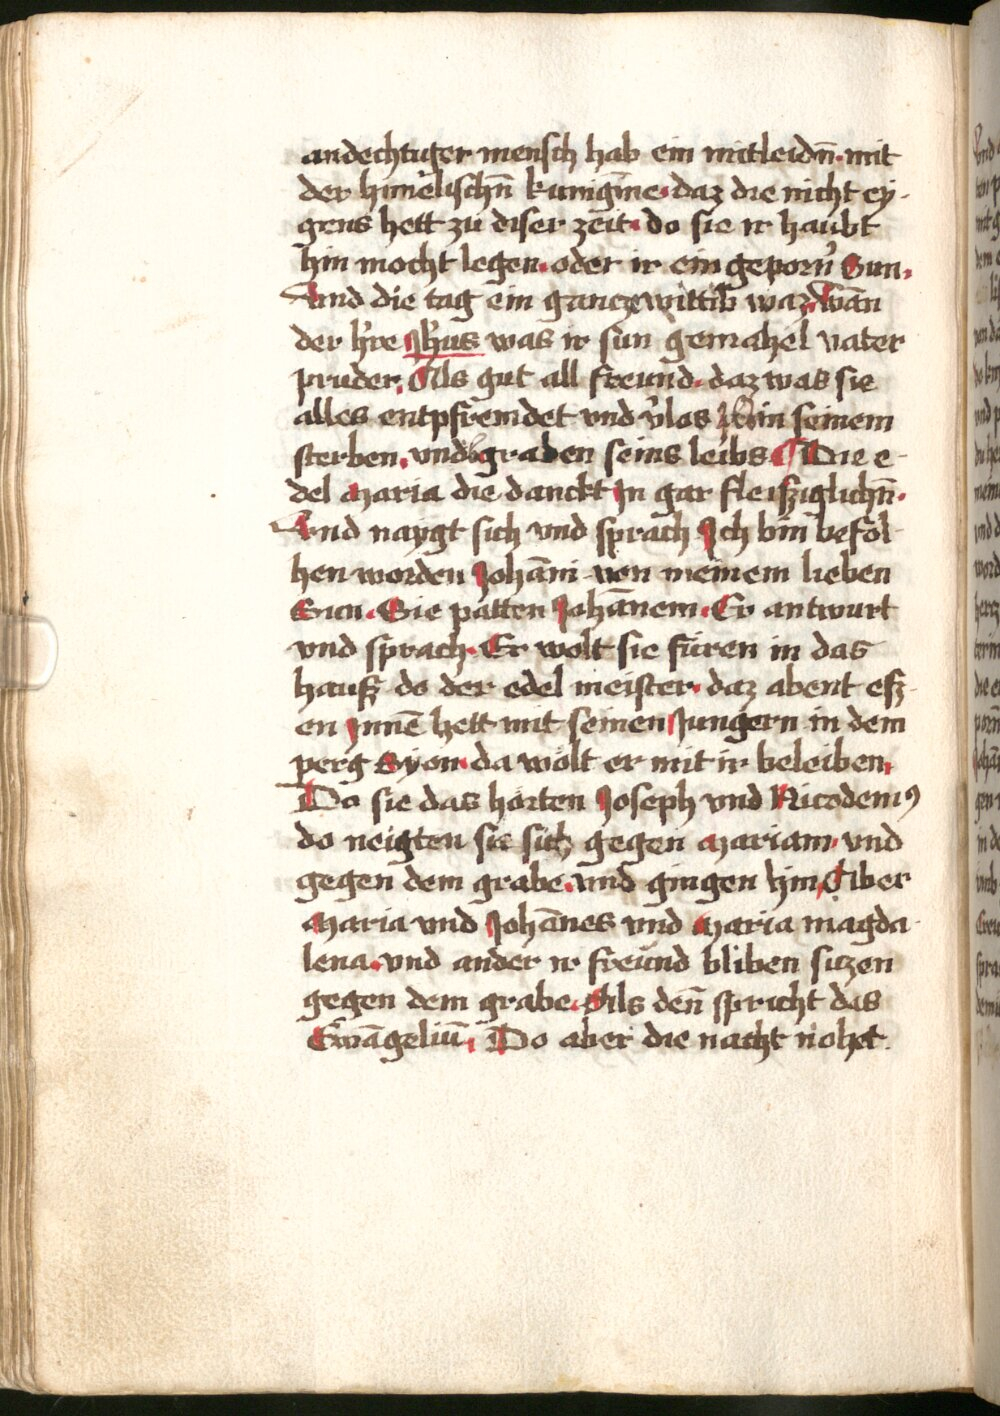 andechtiger mensch hab ein mitleidn̄. mit
der himelischn̄ kunigīne. daz die nicht ey-
gens hett zu diser zeit. do sie ir haubt
hin mocht legen. oder ir ein geporn̄ Sun.
Und die tag ein gancze wittib waz. wān
der h're Jh'us was ir sun gemahel vater
pruder. Als gut all freund. daz was sie
alles entpfremdet vnd v'los in seinem
sterben. vnd bgraben seins leibs. Die e-
del Maria die danckt In gar fleisziglichn̄.
Und naygt sich vnd sprach Ich bin befol-
hen worden Johāni von meinem lieben
Sun. Sie patten Johānem. Er antwurt
vnd sprach. Er wolt sie füren in das
hausz do der edel meister. daz abent esz-
en Innē hett mit seinen Jungern in dem
perg Syon. da wolt er mit ir beleiben.
Do sie das horten Joseph vnd Nicodemꝰ
do neigten sie sich gegen Mariam. vnd
gegen dem grabe. vnd gingen hin. Aber
Maria vnd Johānes vnd Maria magda-
lena. vnd ander ir freund bliben siczen
gegen dem grabe. Als den̄ spricht das
Ewāgeliū. Do aber die nacht nohet.